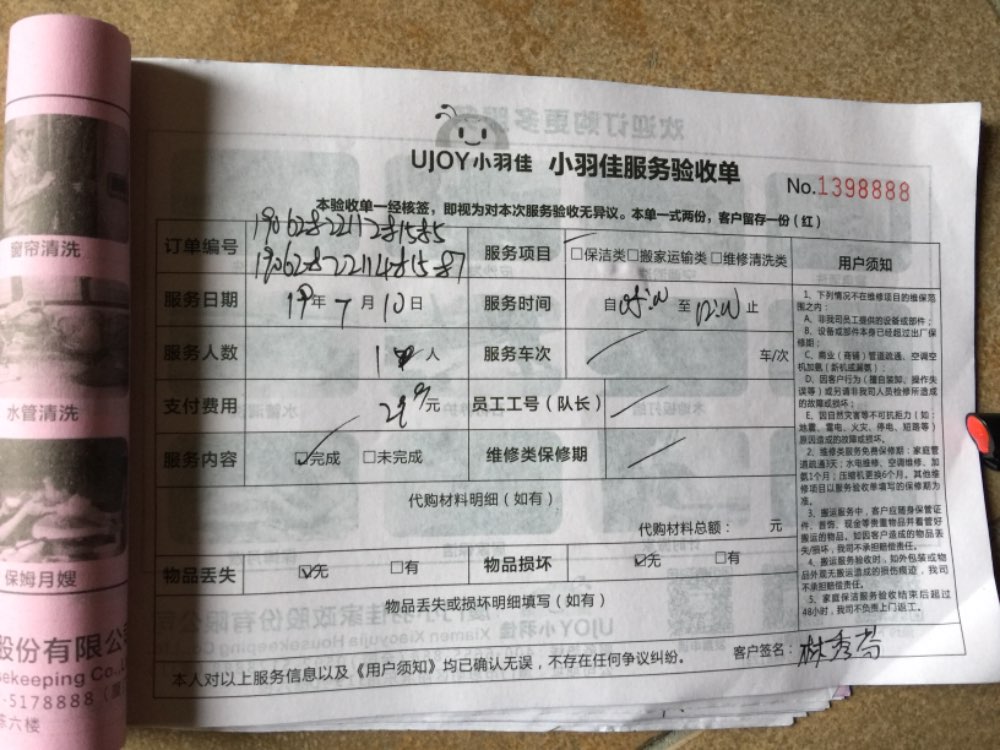 UJOY小羽佳 小羽佳服务验收单
No.1398888
本验收单一经核签，即视为对本次服务验收无异议。本单一式两份，客户留存一份（红）
订单编号 服务项目 □保洁类□搬家运输类□维修清洗类 用户须知
服务日期 19年7月10日 服务时间 自 至 止
服务人数 1 人 服务车次 车/次
支付费用 元 员工工号（队长）
服务内容 ☑完成 □未完成 维修类保修期
代购材料明细（如有）
代购材料总额： 元
物品丢失 ☑无 □有 物品损坏 ☑无 □有
物品丢失或损坏明细填写（如有）
本人对以上服务信息以及《用户须知》均已确认无误，不存在任何争议纠纷。
客户签名：林秀芬
1、下列情况不在维修项目的维保范
围之内：
A、非我司员工提供的设备或部件；
B、设备或部件本身已经超过出厂保
修期；
C、商业（商铺）管道疏通、空调空
机加氨（新机或漏氨）；
D、因客户行为（擅自装卸、操作失
误等）或另请非我司人员检修所造成
的故障或损坏；
E、因自然灾害等不可抗拒力（如：
地震、雷电、火灾、停电、短路等）
原因造成的故障或损坏。
2、维修类服务免费保修期：家庭管
道疏通3天；水电维修、空调维修、加
氨1个月；压缩机更换6个月。其他维
修项目以服务验收单填写的保修期为
准。
3、搬运服务中，客户应随身保管证
件、首饰、现金等贵重物品并看管好
搬运的物品。如因客户造成的物品丢
失/损坏，我司不承担赔偿责任。
4、搬运服务验收时，如外包装或物
品外观无搬运造成的损伤痕迹，我司
不承担赔偿责任。
5、家庭保洁服务验收结束后超过
48小时，我司不负责上门返工。
窗帘清洗
水管清洗
保姆月嫂
股份有限公
sekeeping Co.,
-5178888
六楼